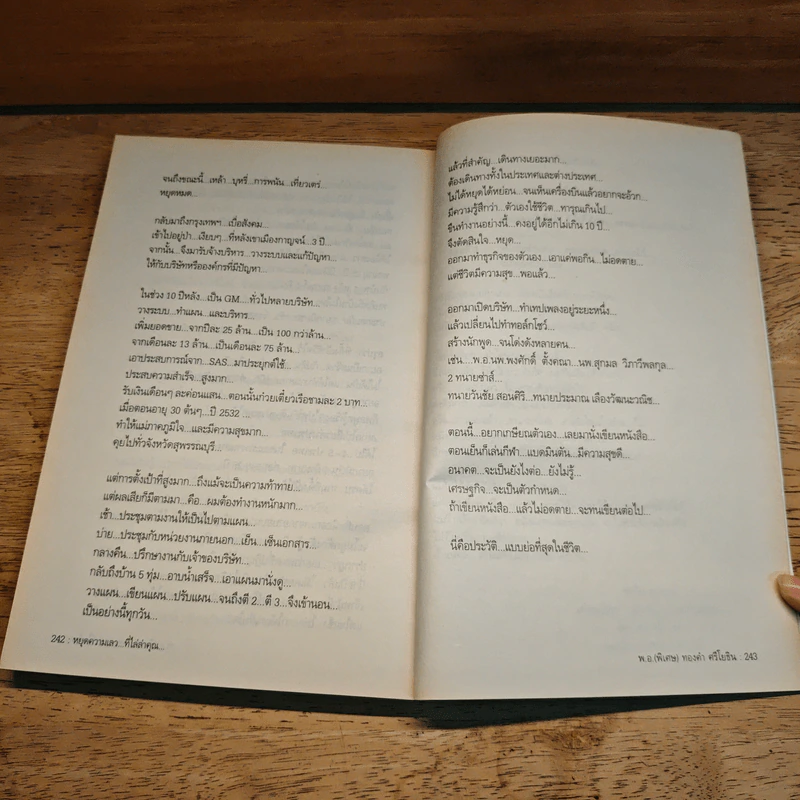 จนถึงขณะนี้...เหล้า...บุหรี่...การพนัน...เที่ยวเตร่
หยุดหมด...
กลับมาถึงกรุงเทพฯ...เบื่อสังคม...
เข้าไปอยู่ป่า...เงียบๆ...ที่หลังเขาเมืองกาญจน์...3 ปี...
จากนั้น...จึงมารับจ้างบริหาร...วางระบบและแก้ปัญหา...
ให้กับบริษัทหรือองค์กรที่มีปัญหา...
ในช่วง 10 ปีหลัง...เป็น GM...ทั่วไปหลายบริษัท...
วางระบบ...ทำแผน...และบริหาร...
เพิ่มยอดขาย...จากปีละ 25 ล้าน...เป็น 100 กว่าล้าน...
จากเดือนละ 13 ล้าน...เป็นเดือนละ 75 ล้าน...
เอาประสบการณ์จาก...SAS...มาประยุกต์ใช้...
ประสบความสำเร็จ...สูงมาก...
รับเงินเดือนๆ ละค่อนแสน...ตอนนั้นก๋วยเตี๋ยวเรือชามละ 2 บาท...
เมื่อตอนอายุ 30 ต้นๆ...ปี 2532 ...
ทำให้แม่ภาคภูมิใจ...และมีความสุขมาก...
คุยไปทั่วจังหวัดสุพรรณบุรี...
แต่การตั้งเป้าที่สูงมาก...ถึงแม้จะเป็นความท้าทาย...
แต่ผลเสียก็มีตามมา...คือ...ผมต้องทำงานหนักมาก...
เช้า...ประชุมตามงานให้เป็นไปตามแผน...
บ่าย...ประชุมกับหน่วยงานภายนอก...เย็น...เซ็นเอกสาร...
กลางคืน...ปรึกษางานกับเจ้าของบริษัท...
กลับถึงบ้าน 5 ทุ่ม...อาบน้ำเสร็จ...เอาแผนมานั่งดู...
วางแผน...เขียนแผน...ปรับแผน...จนถึงตี 2...ตี 3...จึงเข้านอน...
เป็นอย่างนี้ทุกวัน...
242 : หยุดความเลว...ที่ไล่ล่าคุณ...
แล้วที่สำคัญ...เดินทางเยอะมาก...
ต้องเดินทางทั้งในประเทศและต่างประเทศ...
ไม่ได้หยุดได้หย่อน...จนเห็นเครื่องบินแล้วอยากจะอ้วก...
มีความรู้สึกว่า...ตัวเองใช้ชีวิต...ทารุณเกินไป...
ขืนทำงานอย่างนี้...คงอยู่ได้อีกไม่เกิน 10 ปี...
จึงตัดสินใจ...หยุด...
ออกมาทำธุรกิจของตัวเอง...เอาแค่พอกิน...ไม่อดตาย...
แต่ชีวิตมีความสุข...พอแล้ว...
ออกมาเปิดบริษัท...ทำเทปเพลงอยู่ระยะหนึ่ง...
แล้วเปลี่ยนไปทำทอล์กโชว์...
สร้างนักพูด...จนโด่งดังหลายคน...
เช่น...พ.อ.นพ.พงศักดิ์ ตั้งคณา...นพ.สุกมล วิภาวีพลกุล...
2 ทนายซ่าส์...
ทนายวันชัย สอนศิริ...ทนายประมาณ เลืองวัฒนะวณิช...
ตอนนี้...อยากเกษียณตัวเอง...เลยมานั่งเขียนหนังสือ...
ตอนเย็นก็เล่นกีฬา...แบดมินตัน...มีความสุขดี...
อนาคต...จะเป็นยังไงต่อ...ยังไม่รู้...
เศรษฐกิจ...จะเป็นตัวกำหนด...
ถ้าเขียนหนังสือ...แล้วไม่อดตาย...จะทนเขียนต่อไป...
นี่คือประวัติ...แบบย่อที่สุดในชีวิต...
พ.อ.(พิเศษ) ทองคำ ศรีโยธิน : 243